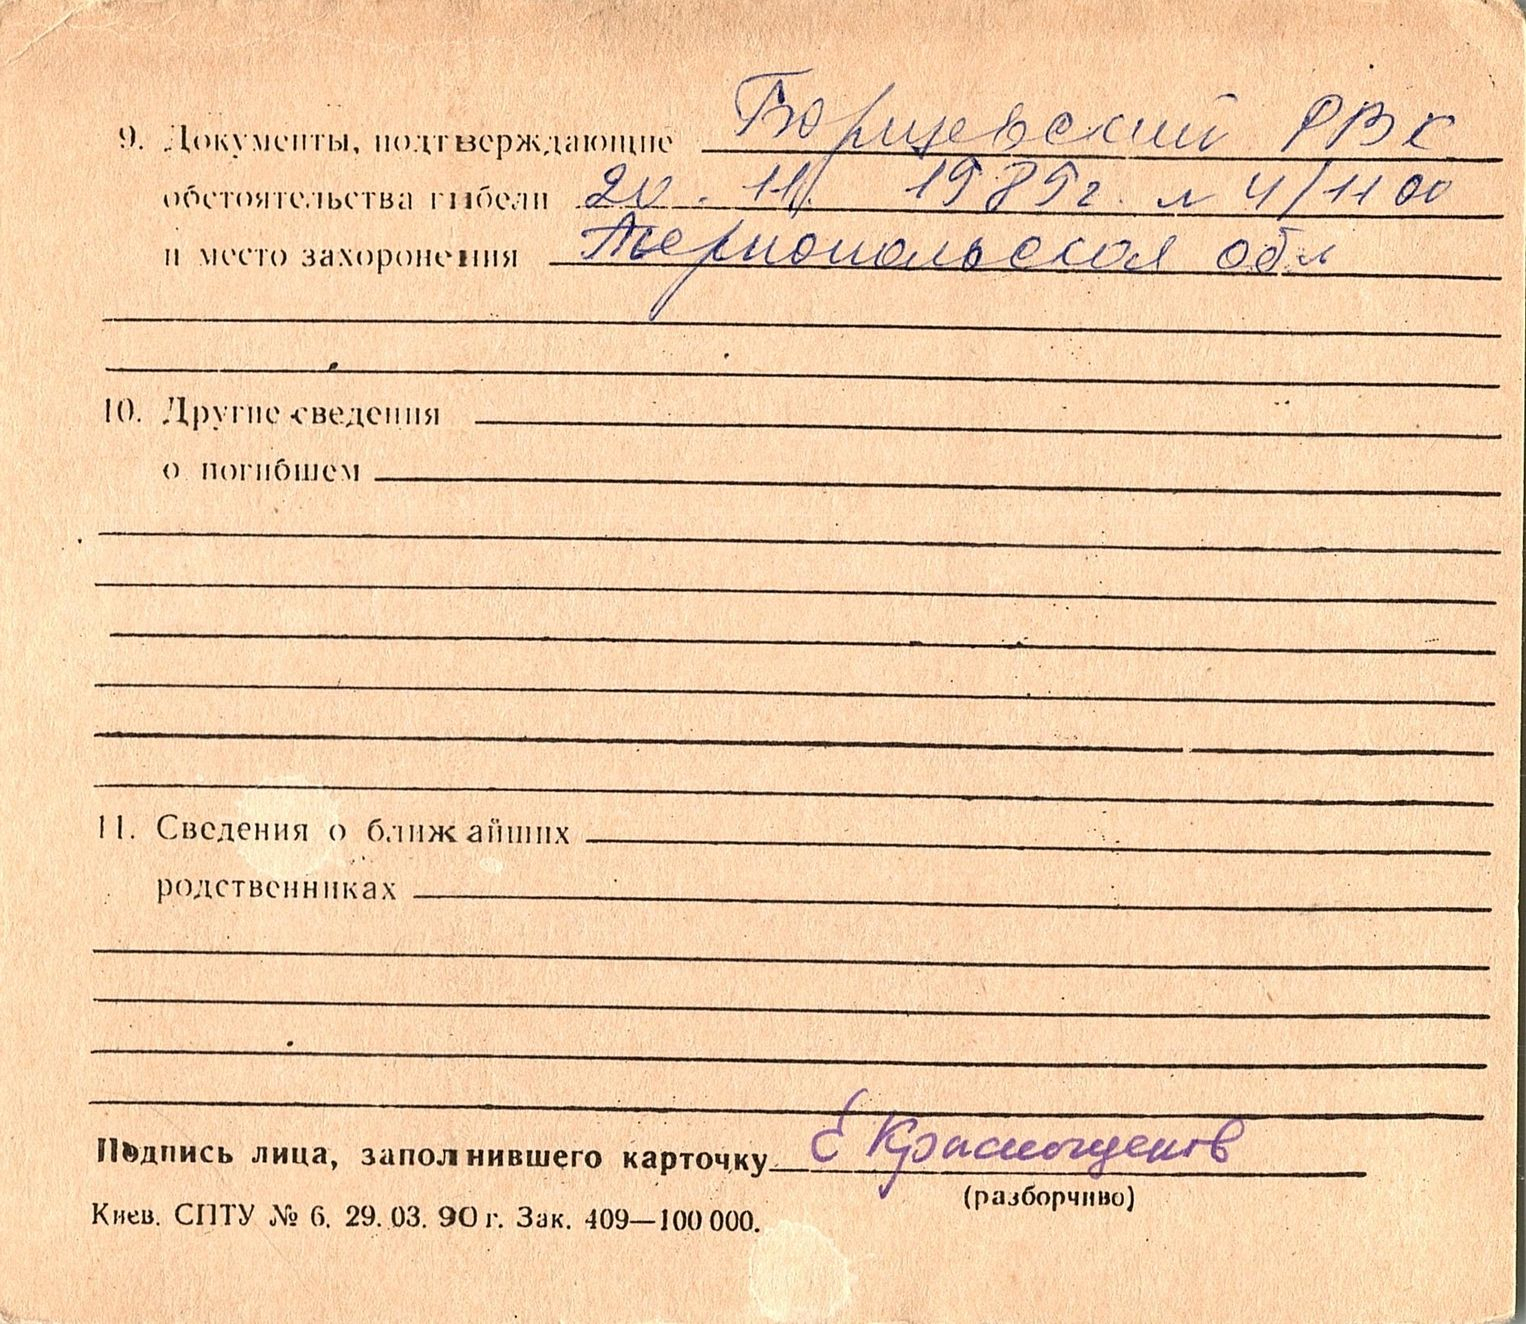 9. Документы, подтверждающие Борщевский РВК
обстоятельства гибели 20. 11. 1985 г. № 4/1100
и место захоронения Тернопольская обл
10. Другие сведения
о погибшем
11. Сведения о ближайших
родственниках
Подпись лица, заполнившего карточку Е Краснощеков
(разборчиво)
Киев. СПТУ № 6. 29. 03. 90 г. Зак. 409—100 000.